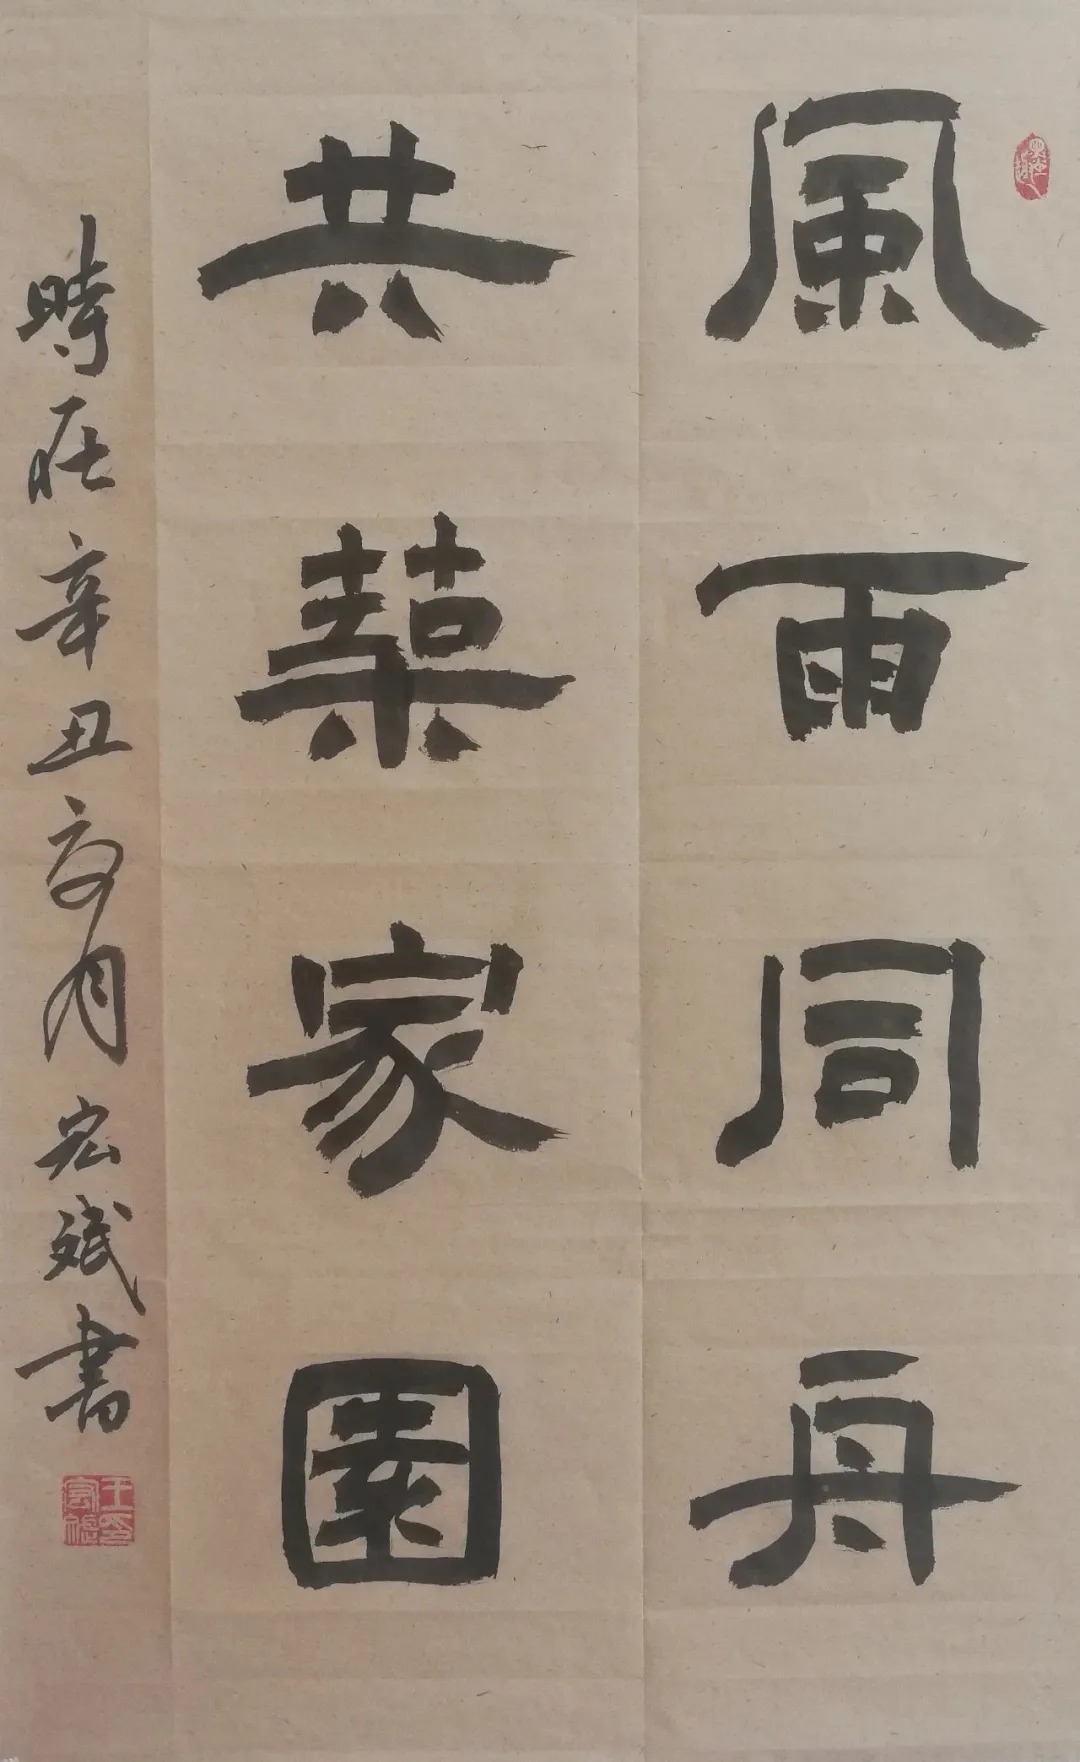 風雨同舟
共築家園
時在辛丑夏月宏斌書